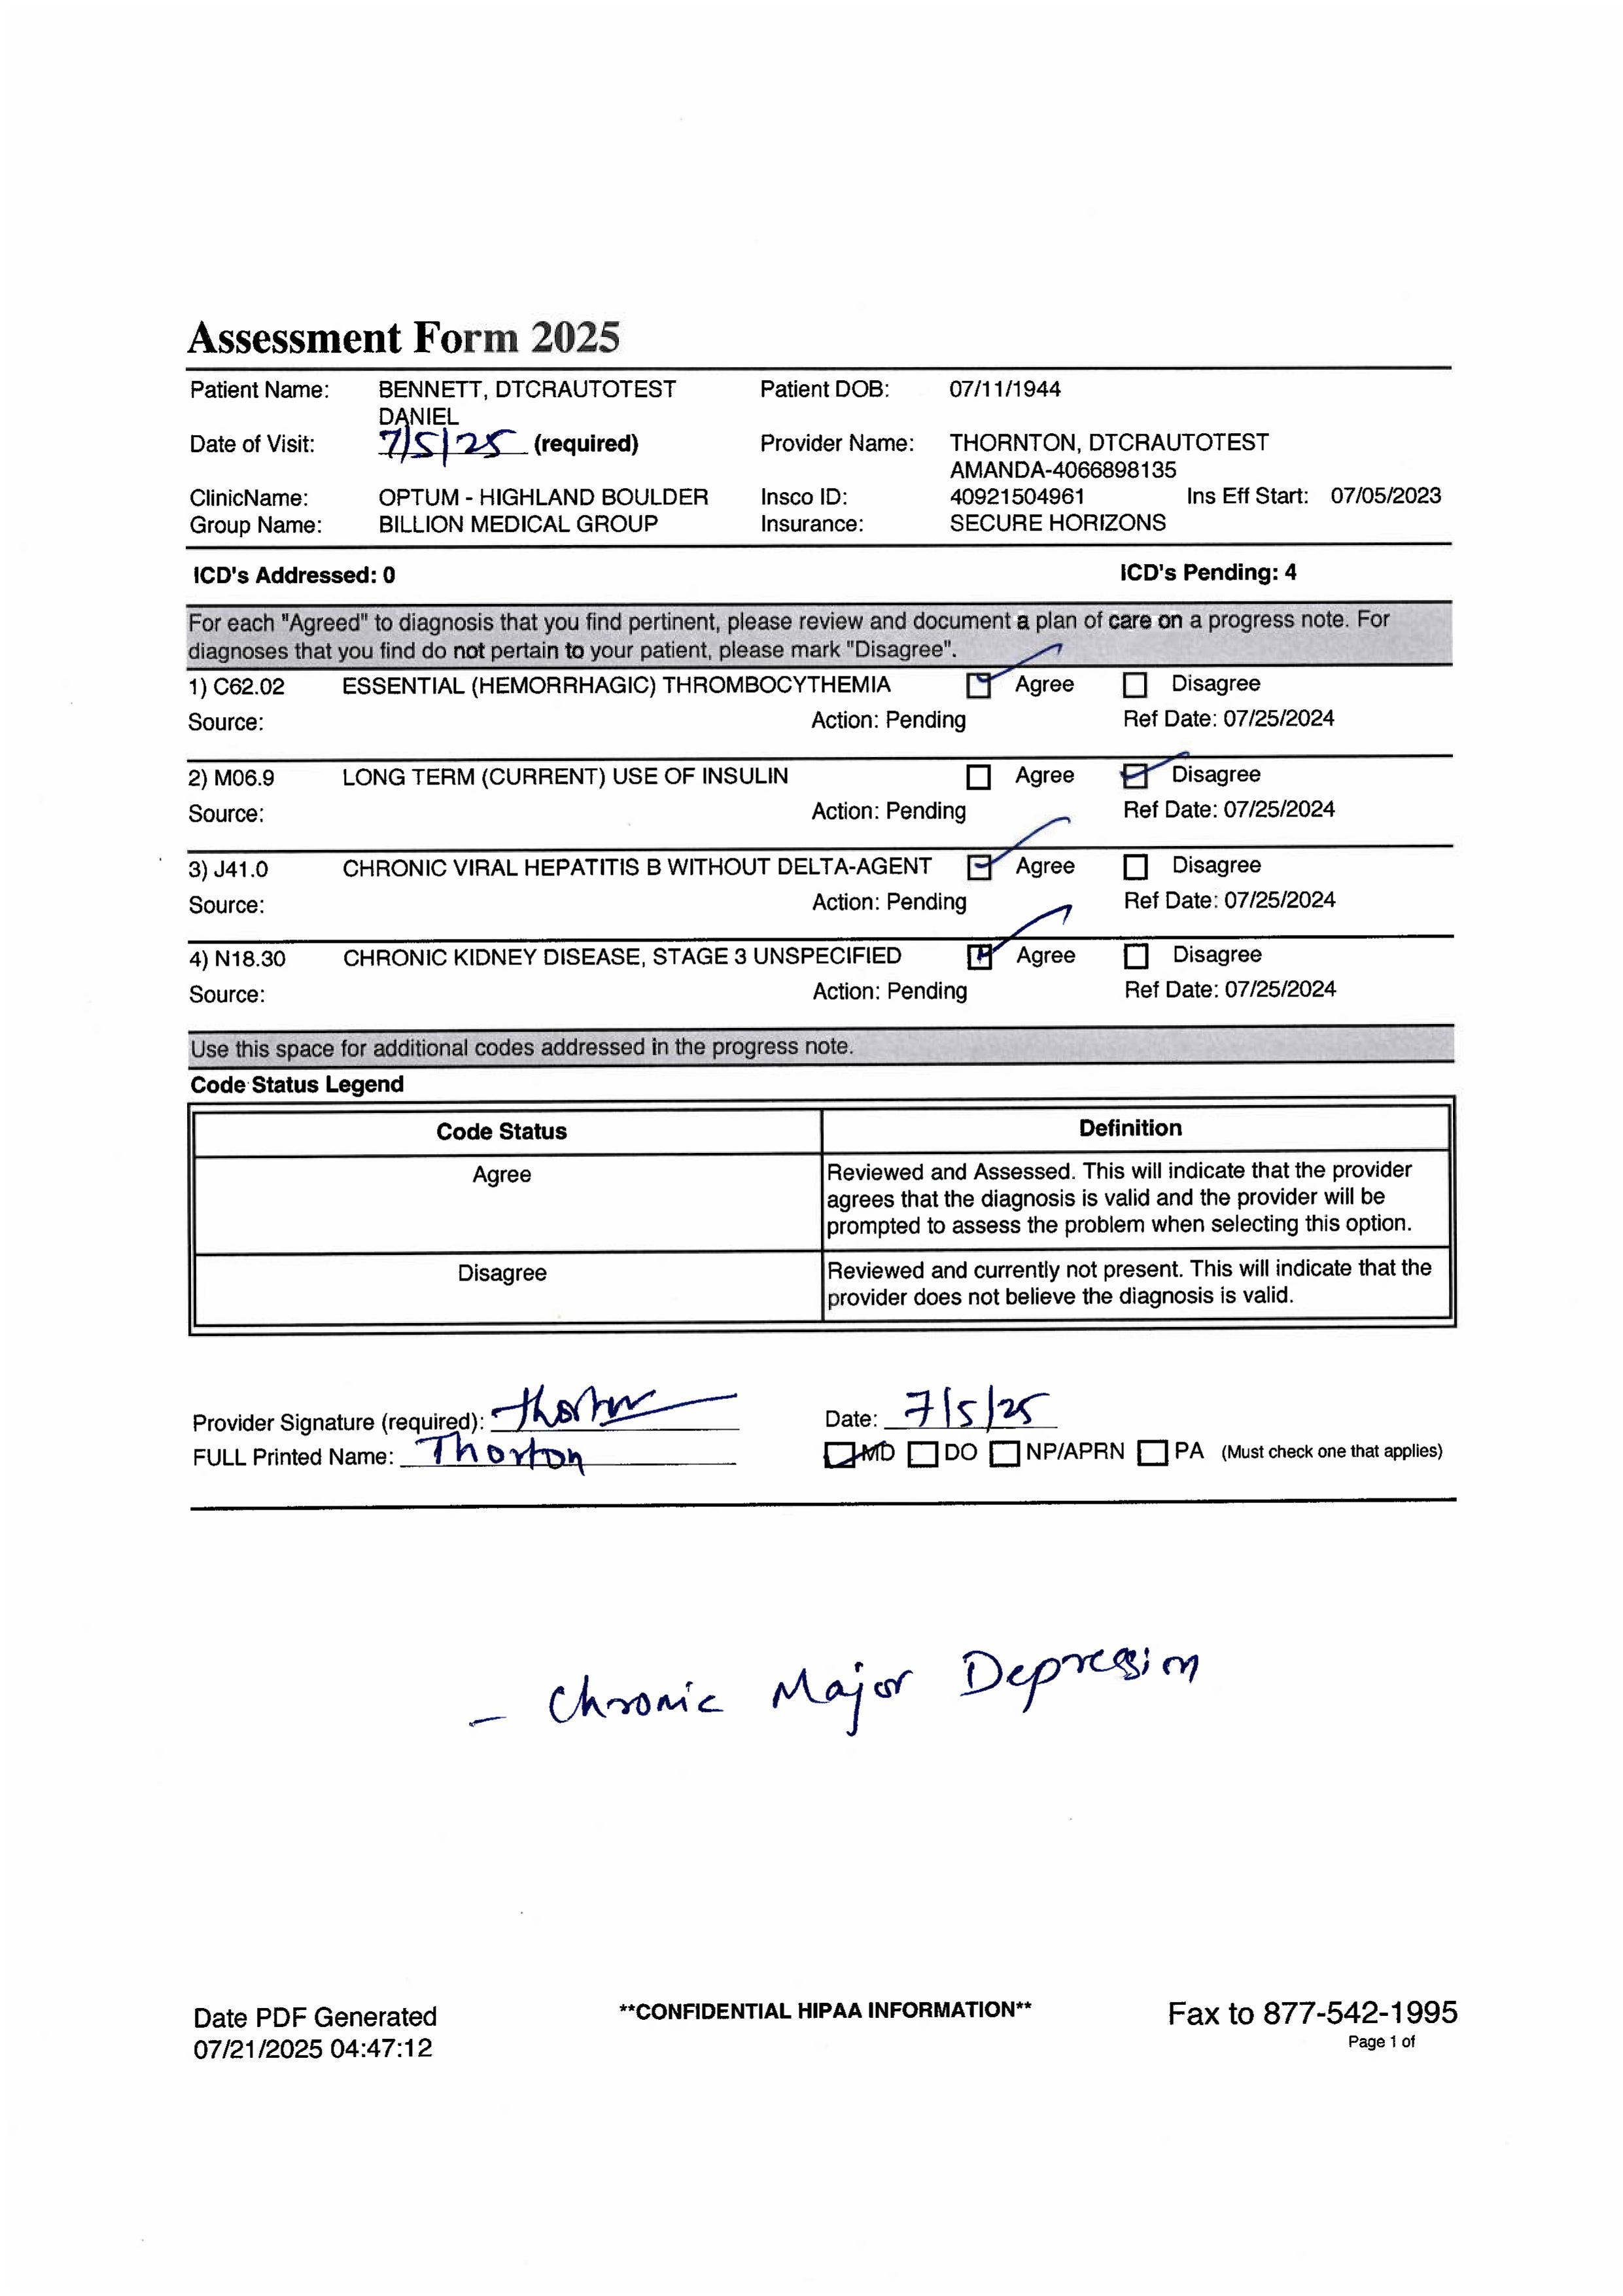 Assessment Form 2025
Patient Name: BENNETT, DTCRAUTOTEST DANIEL Patient DOB: 07/11/1944
Date of Visit: 7/5/25 (required) Provider Name: THORNTON, DTCRAUTOTEST AMANDA-4066898135
ClinicName: OPTUM - HIGHLAND BOULDER Insco ID: 40921504961 Ins Eff Start: 07/05/2023
Group Name: BILLION MEDICAL GROUP Insurance: SECURE HORIZONS
ICD's Addressed: 0 ICD's Pending: 4
For each "Agreed" to diagnosis that you find pertinent, please review and document a plan of care on a progress note. For
diagnoses that you find do not pertain to your patient, please mark "Disagree".
1) C62.02 ESSENTIAL (HEMORRHAGIC) THROMBOCYTHEMIA Agree Disagree
Source: Action: Pending Ref Date: 07/25/2024
2) M06.9 LONG TERM (CURRENT) USE OF INSULIN Agree Disagree
Source: Action: Pending Ref Date: 07/25/2024
3) J41.0 CHRONIC VIRAL HEPATITIS B WITHOUT DELTA-AGENT Agree Disagree
Source: Action: Pending Ref Date: 07/25/2024
4) N18.30 CHRONIC KIDNEY DISEASE, STAGE 3 UNSPECIFIED Agree Disagree
Source: Action: Pending Ref Date: 07/25/2024
Use this space for additional codes addressed in the progress note.
Code Status Legend
Code Status Definition
Agree Reviewed and Assessed. This will indicate that the provider
agrees that the diagnosis is valid and the provider will be
prompted to assess the problem when selecting this option.
Disagree Reviewed and currently not present. This will indicate that the
provider does not believe the diagnosis is valid.
Provider Signature (required): Thorton Date: 7/5/25
FULL Printed Name: Thorton MD DO NP/APRN PA (Must check one that applies)
- Chronic Major Depression
Date PDF Generated **CONFIDENTIAL HIPAA INFORMATION** Fax to 877-542-1995
07/21/2025 04:47:12 Page 1 of